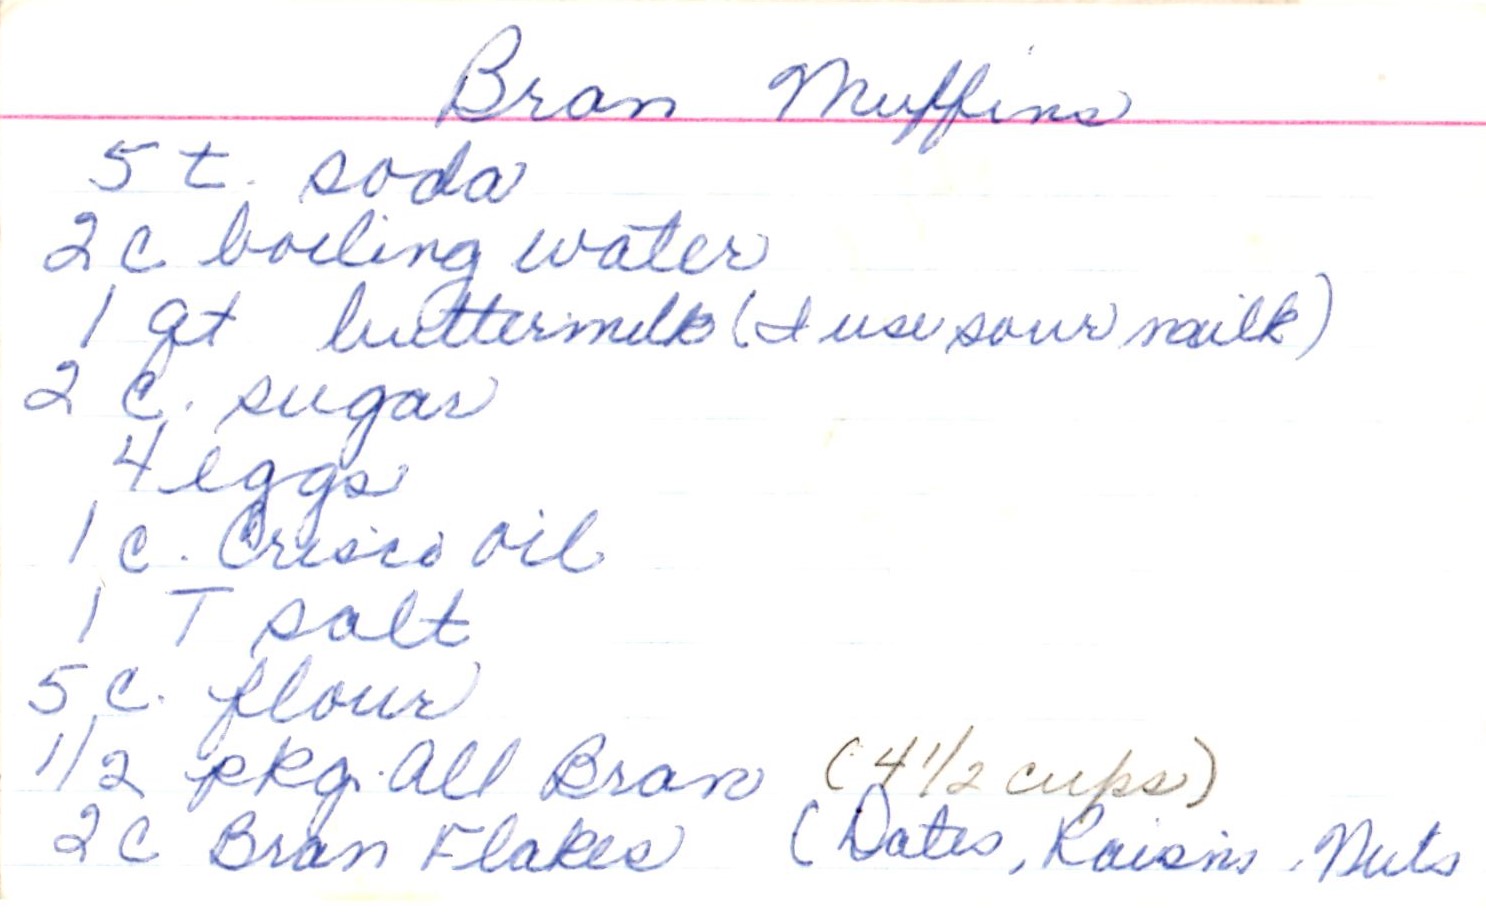 Bran Muffins
5 t. soda
2 c boiling water
1 qt buttermilk (I use sour milk)
2 c. sugar
4 eggs
1 c. Crisco oil
1 T salt
5 c. flour
1/2 pkg. All Bran (4 1/2 cups)
2 c Bran Flakes (Dates, Raisins, Nuts